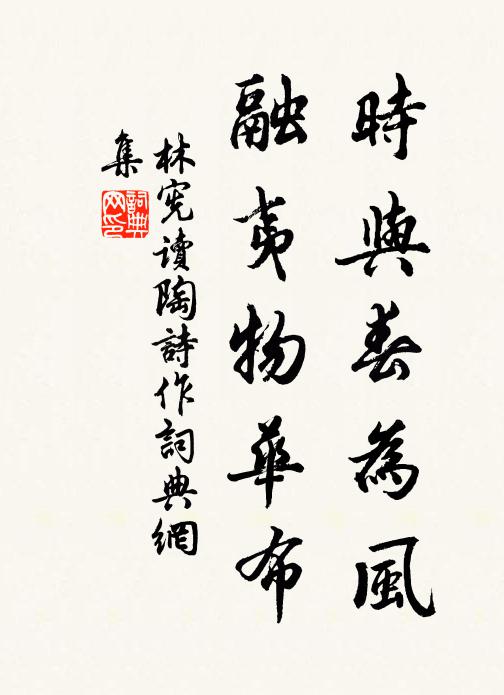 時與春為風
融夷物華布
林宪讀陶詩作詞典網
集
詞典
网印